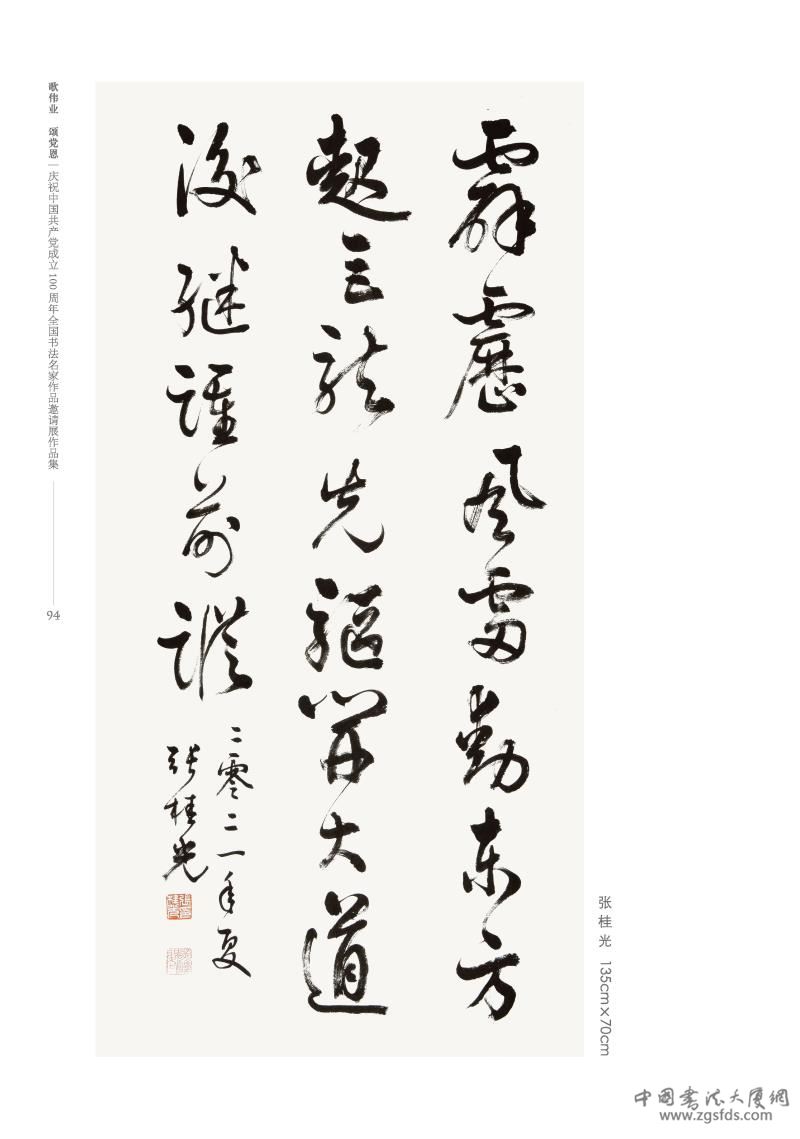 歌伟业 颂党恩 | 庆祝中国共产党成立100周年全国书法名家作品邀请展作品集
94
霹靂風雷動東方
起巨龍先驅開大道
後繼踵前蹤
二零二一年夏
張桂光
张桂光 135cm×70cm
中国书法大厦网
www.zgsfds.com